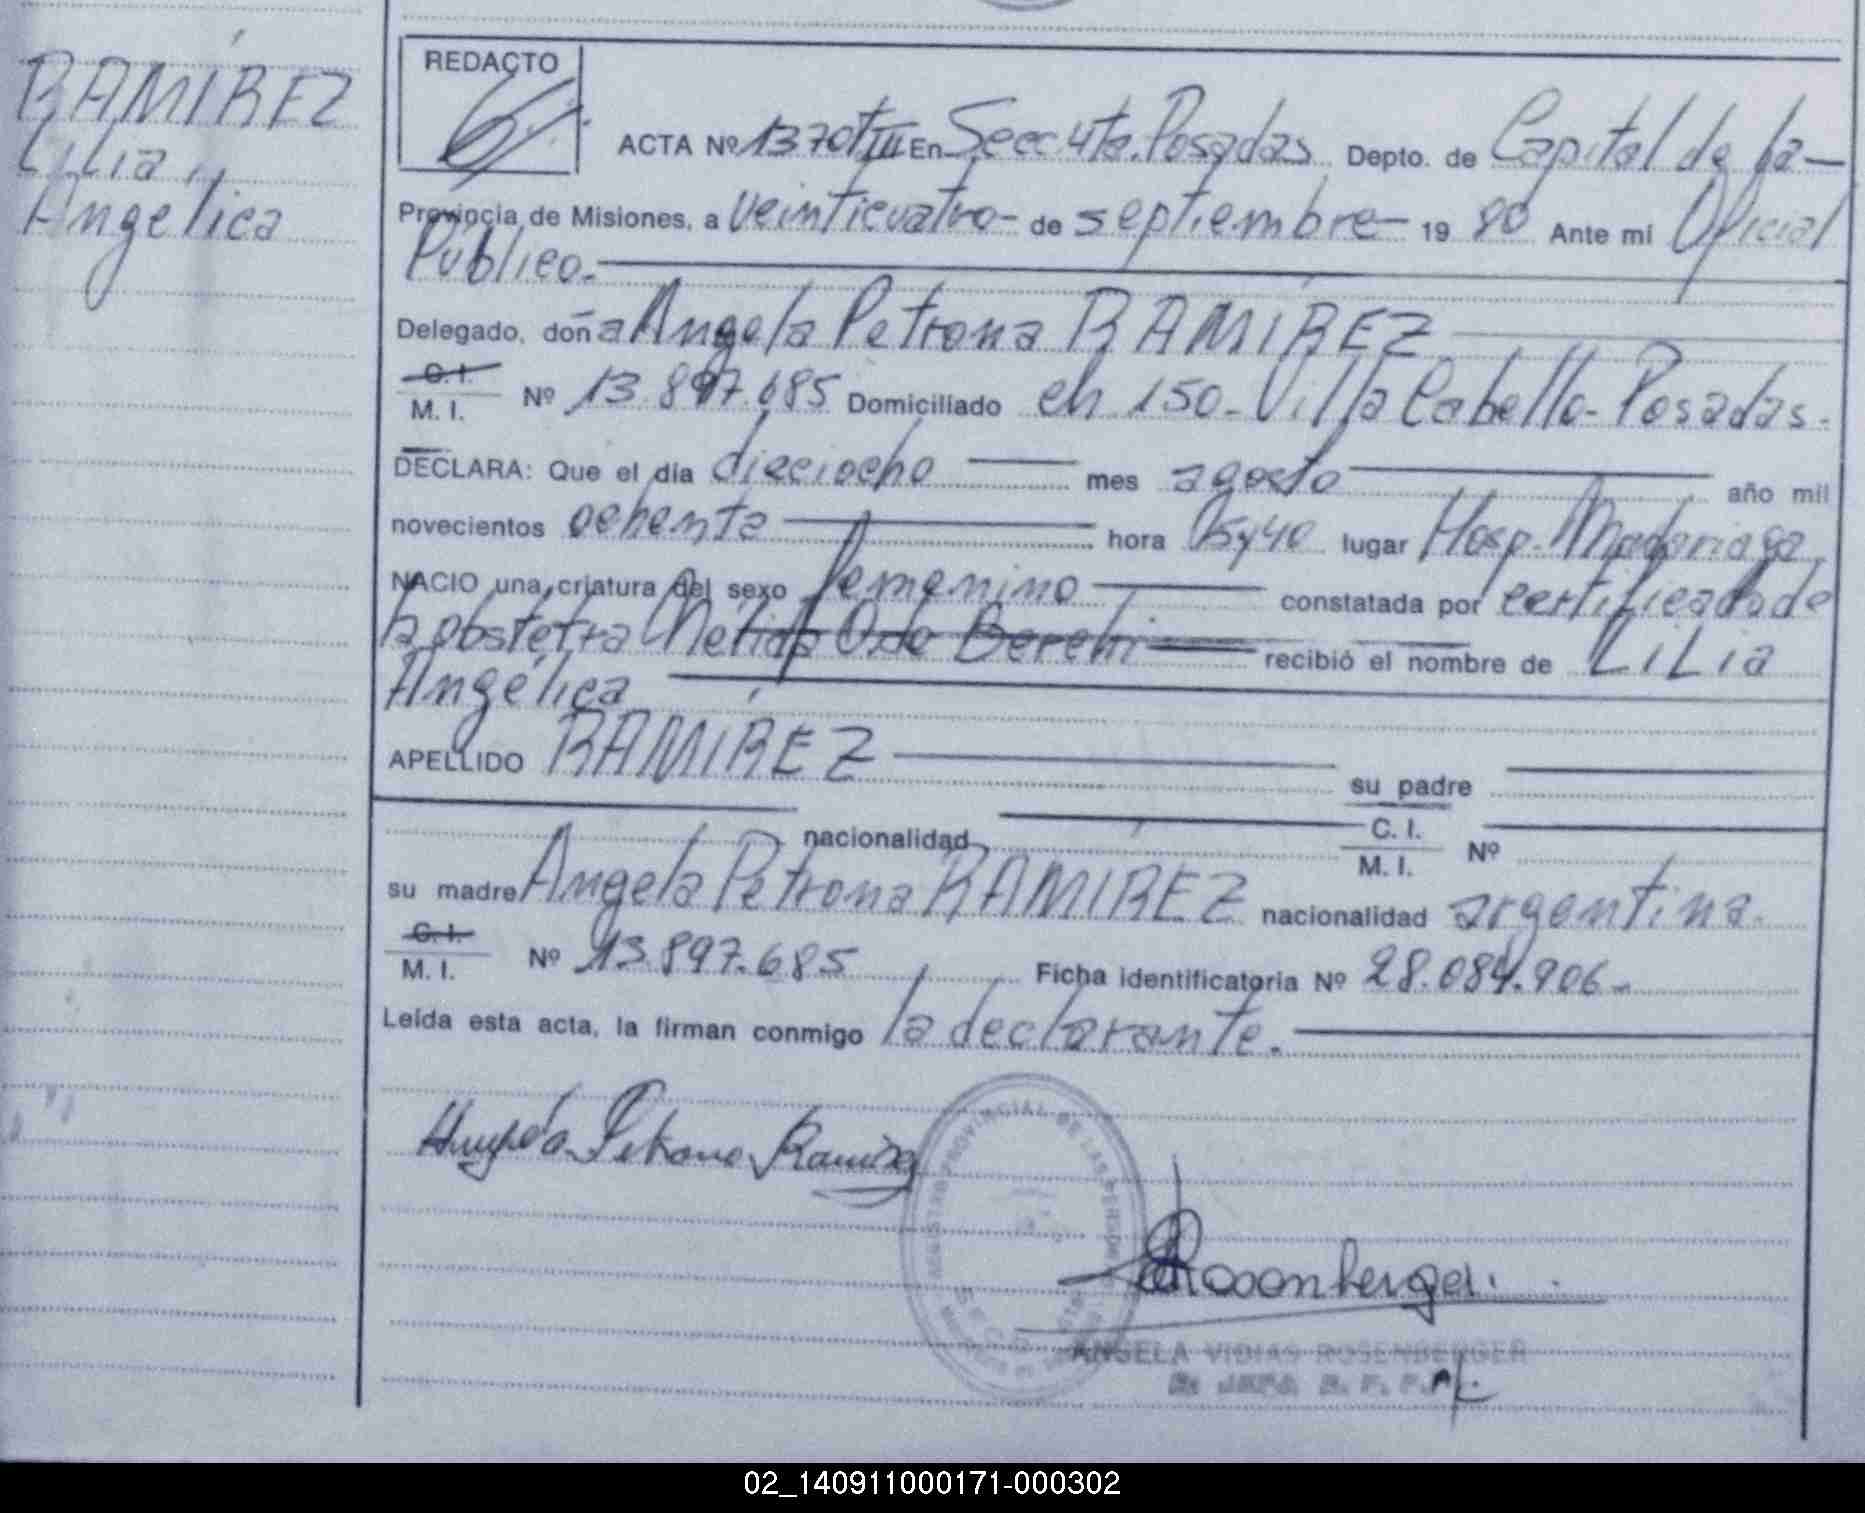 RAMÍREZ
Lilia
Angélica
REDACTO
ACTA Nº 1370 T III En Secc 4ta. Posadas Depto. de Capital de la-
Provincia de Misiones, a veinticuatro- de septiembre- 19 80 Ante mi Oficial
Público.-
Delegado, doña Angela Petrona RAMÍREZ
C. I.
M. I. Nº 13.897.685 Domiciliado ch 150- Villa Cabello- Posadas.
DECLARA: Que el día dieciocho mes agosto año mil
novecientos ochenta hora 15y40 lugar Hosp. Madariaga
NACIO una criatura del sexo femenino constatada por certificado de
la obstetra Nélida O. de recibió el nombre de LiLia
Angélica
APELLIDO RAMÍREZ su padre
nacionalidad C. I.
M. I. Nº
su madre Angela Petrona RAMÍREZ nacionalidad argentina.
C. I.
M. I. Nº 13.897.685 Ficha identificatoria Nº 28.084.906-
Leída esta acta, la firman conmigo la declarante.
Angela Petrona Ramirez
REGISTRO PROVINCIAL DE LAS PERSONAS
Rosenberger
ANGELA VIDIAS ROSENBERGER
02_140911000171-000302